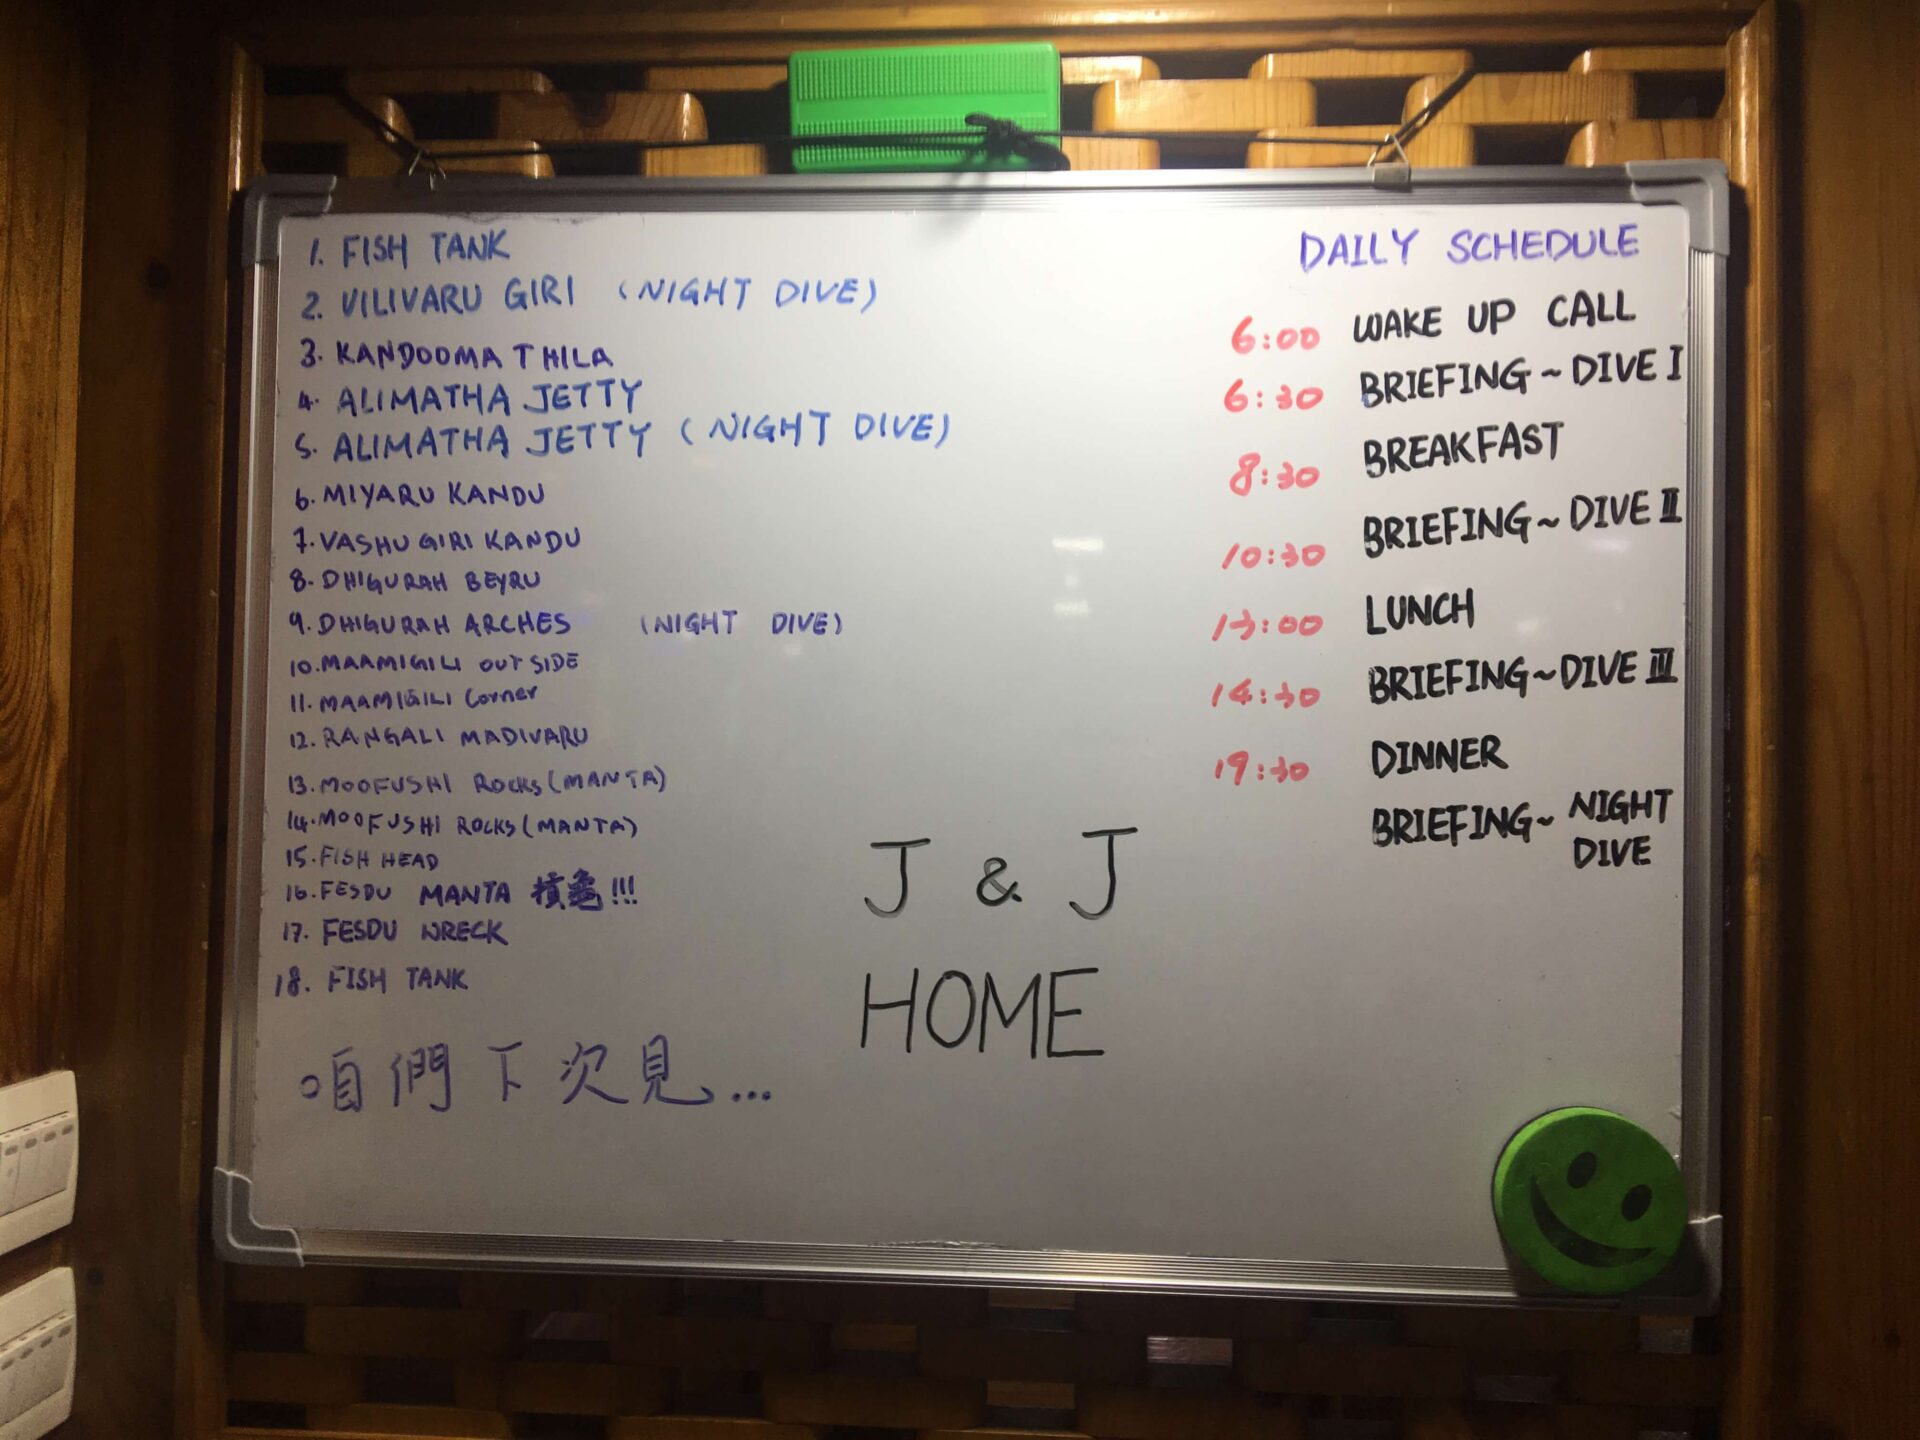 1. FISH TANK
2. VILIVARU GIRI (NIGHT DIVE)
3. KANDOOMA THILA
4. ALIMATHA JETTY
5. ALIMATHA JETTY (NIGHT DIVE)
6. MIYARU KANDU
7. VASHUGIRI KANDU
8. DHIGURAH BEYRU
9. DHIGURAH ARCHES (NIGHT DIVE)
10. MAAMIGILI OUTSIDE
11. MAAMIGILI Corner
12. RANGALI MADIVARU
13. MOOFUSHI ROCKS (MANTA)
14. MOOFUSHI ROCKS (MANTA)
15. FISH HEAD
16. FESDU MANTA 摃龜!!!
17. FESDU WRECK
18. FISH TANK
咱們下次見...
J & J
HOME
DAILY SCHEDULE
6:00 WAKE UP CALL
6:30 BRIEFING ~ DIVE I
8:30 BREAKFAST
10:30 BRIEFING ~ DIVE II
13:00 LUNCH
14:30 BRIEFING ~ DIVE III
19:30 DINNER
BRIEFING ~ NIGHT
DIVE